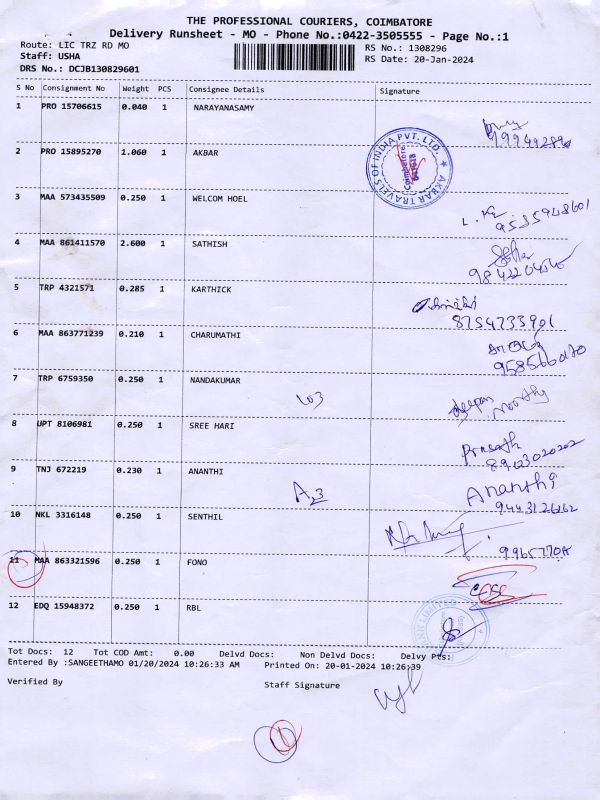 THE PROFESSIONAL COURIERS, COIMBATORE
Delivery Runsheet - MO - Phone No.:0422-3505555 - Page No.:1
Route: LIC TRZ RD MO
RS No.: 1308296
Staff: USHA
RS Date: 20-Jan-2024
DRS No.: DCJB130829601
S No Consignment No Weight PCS Consignee Details Signature
1 PRO 15706615 0.040 1 NARAYANASAMY
2 PRO 15895270 1.060 1 AKBAR
AKBAR TRAVELS OF INDIA PVT. LTD.
Coimbatore
3 MAA 573435509 0.250 1 WELCOM HOEL
9535948601
4 MAA 861411570 2.600 1 SATHISH
5 TRP 4321571 0.285 1 KARTHICK
8754733901
6 MAA 863771239 0.210 1 CHARUMATHI
7 TRP 6759350 0.250 1 NANDAKUMAR
103
8 UPT 8106981 0.250 1 SREE HARI
Prasath
9 TNJ 672219 0.230 1 ANANTHI
A23
Ananthi
10 NKL 3316148 0.250 1 SENTHIL
11 MAA 863321596 0.250 1 FONO
12 EDQ 15948372 0.250 1 RBL
Tot Docs: 12 Tot COD Amt: 0.00 Delvd Docs: Non Delvd Docs: Delvy Pts:
Entered By :SANGEETHAMO 01/20/2024 10:26:33 AM Printed On: 20-01-2024 10:26:39
Verified By Staff Signature